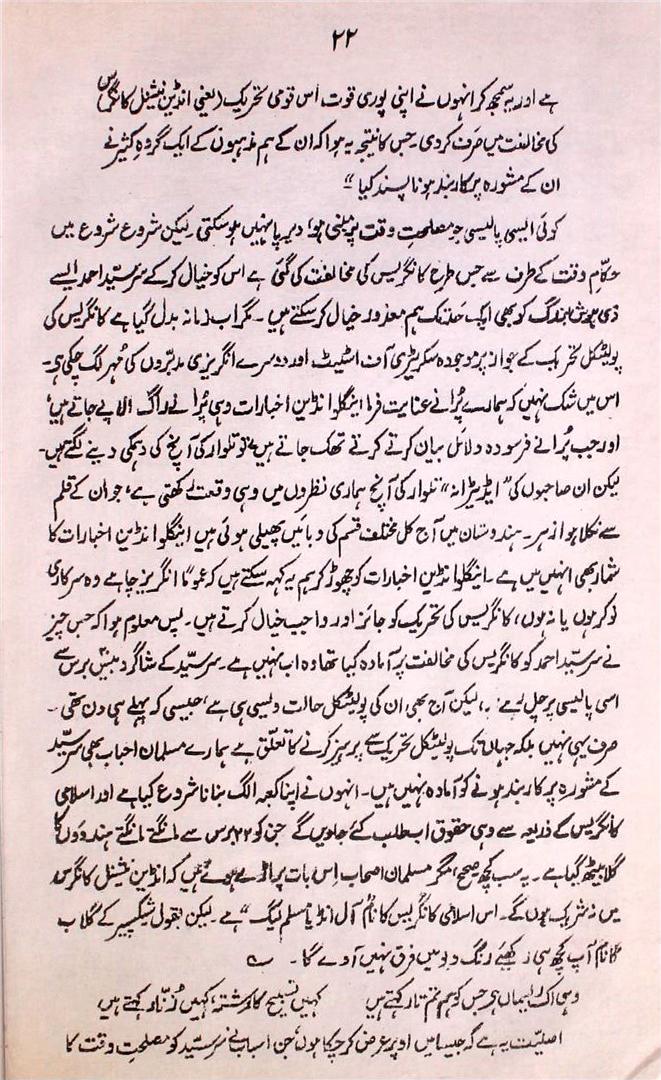 ۲۲
ہے اور یہ سمجھ کر انہوں نے اپنی پوری قوت اس قومی تحریک (یعنی انڈین نیشنل کانگرس
کی مخالفت میں صَرف کر دی۔ جس کا نتیجہ یہ ہوا کہ ان کے ہم مذہبوں کے ایک گروہِ کثیر نے
ان کے مشورہ پر کاربند ہونا پسند کیا‘‘
کوئی ایسی پالیسی جو مصلحتِ وقت پر مبنی ہو، دیرپا نہیں ہو سکتی۔ لیکن شروع شروع میں
حکّامِ وقت کے طرف سے جس طرح کانگریس کی مخالفت کی گئی ہے اس کو خیال کر کے سر سیّد احمد ایسے
ذی ہوش بزرگ کو بھی ایک حد تک ہم معذور خیال کر سکتے ہیں۔ مگر اب زمانہ بدل گیا ہے کانگریس کی
پولٹیکل تحریک کے جواز پر موجودہ سکریٹری آف اسٹیٹ، اور دوسرے انگریزی مدبّروں کی مُہر لگ چکی ہے۔
اس میں شک نہیں کہ ہمارے پُرانے عنایت فرما اینگلو انڈین اخبارات وہی پُرانے راگ الاپے جاتے ہیں،
اور جب پُرانے فرسودہ دلائل بیان کرتے کرتے تھک جاتے ہیں، تو تلوار کی آنچ کی دھمکی دینے لگتے ہیں۔
لیکن ان صاحبوں کی ’’ایڈیٹرانہ‘‘ تلوار کی آنچ ہماری نظروں میں وہی وقعت رکھتی ہے، جو ان کے قلم
سے نکلا ہوا زہر۔ ہندوستان میں آج کل مختلف قسم کی وبائیں پھیلی ہوئی ہیں اینگلو انڈین اخبارات کا
شمار بھی انہیں میں ہے۔ اینگلو انڈین اخبارات کو چھوڑ کر ہم یہ کہہ سکتے ہیں کہ عموماً انگریز چاہے وہ سرکاری
نوکر ہوں یا نہ ہوں، کانگریس کی تحریک کو جائز اور واجب خیال کرتے ہیں۔ پس معلوم ہوا کہ جس چیز
نے سر سیّد احمد کو کانگریس کی مخالفت پر آمادہ کیا تھا وہ اب نہیں ہے۔ سر سیّد کے شاگرد بیس برس سے
اسی پالیسی پر چل رہے ، لیکن آج بھی ان کی پولٹیکل حالت ویسی ہی ہے، جیسی کہ پہلے ہی دن تھی۔
صرف یہی نہیں بلکہ جہاں تک پولٹیکل تحریک سے پرہیز کرنے کا تعلّق ہے ہمارے مسلمان احباب بھی سر سیّد
کے مشورہ پر کاربند ہونے کو آمادہ نہیں ہیں۔ انہوں نے اپنا کعبہ الگ بنانا شروع کیا ہے اور اسلامی
کانگریس کے ذریعہ سے وہی حقوق اب طلب کئے جاویں گے جن کو ۲۲ برس سے مانگتے مانگتے ہندوؤں کا
گلا بیٹھ گیا ہے۔ یہ سب کچھ صحیح، مگر مسلمان اصحاب اِس بات پر اڑے ہوئے ہیں کہ انڈین نیشنل کانگرس
میں نہ شریک ہوں گے۔ اس اسلامی کانگریس کا نام ’’آل انڈیا مسلم لیگ‘‘ ہے۔ لیکن بقول شیکسپیر کے گلاب
کا نام آپ کچھ ہی رکھیئے رنگ و بو میں فرق نہیں آوے گا۔ ؎
وہی اک ریسماں ہے جس کو ہم تم تار کہتے ہیں کہیں تسبیح کا رشتہ، کہیں زُنّار کہتے ہیں
اصلیّت یہ ہے کہ جیسا میں اوپر عرض کر چکا ہوں، جن اسباب نے سر سیّد کو مصلحتِ وقت کا